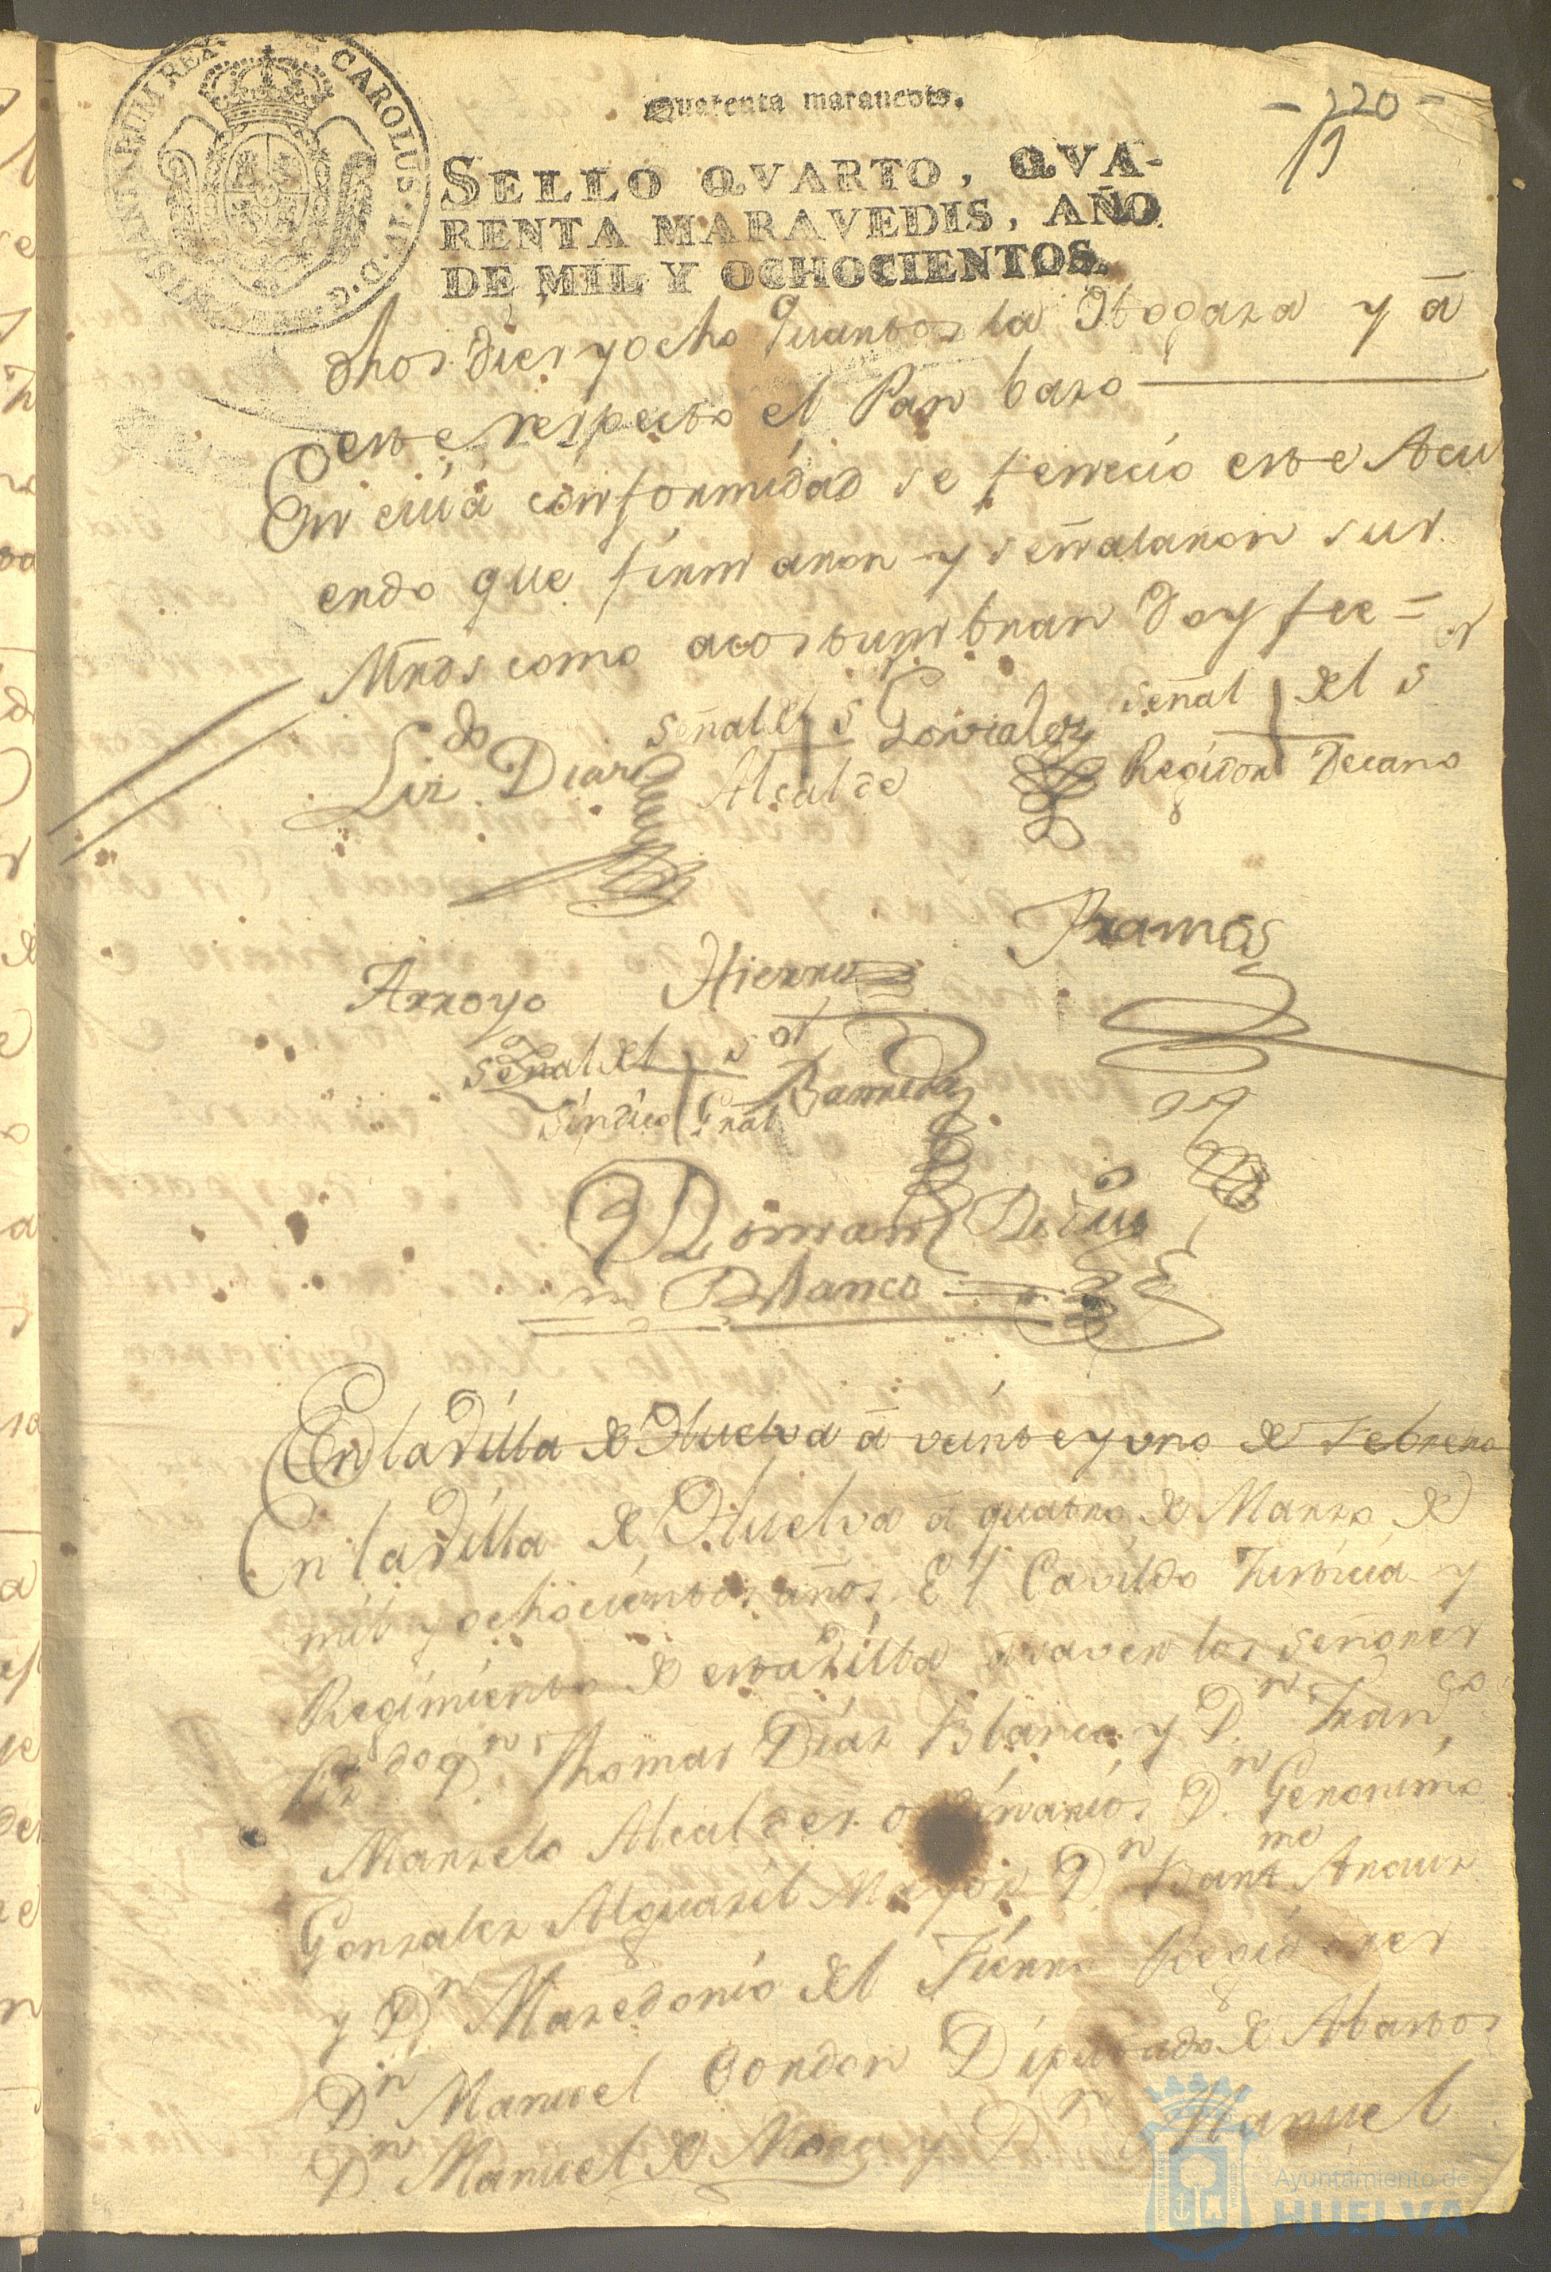 CAROLUS·IV·D·G· HISPANIARUM REX
Quarenta marauedis.
SELLO QVARTO, QVA-
RENTA MARAVEDIS, AÑO
DE MIL Y OCHOCIENTOS.
- 220 -
19
dhos diez y ocho quartos la Ogaza y â
este respecto el Pan bazo
En cuiâ conformidad se fenecio este Acu
erdo que firmaron y señalaron sus
Mrds como acostumbran Doy fee =
Lizdo Diaz señal del sor Gonzalez señal del sor
Alcalde Regidor Decano
Ramos
Arroyo Hierro
señal del sor Barreda
Síndico Gral
Roman De
Blanco
En la Villa de Huelva â veinte y uno de Febrero
En la Villa de Huelva â quatro de Marzo de
mil y ochocientos años El Cavildo Justicia y
Regimiento de esta Villa a saver los señores
Lizdo Dn Thomas Díaz Blanco y Dn Franco
Manzelo Alcaldes ordinarios Dn Geronimo
Gonzalez Alguazil Mayor Dn Bartme Arauz
y Dn Mazedonio del Fierro Regidores
Dn Manuel Gordon Diputado de Abastos
Dn Manuel de Mora y Dn Manuel
Ayuntamiento de
HUELVA